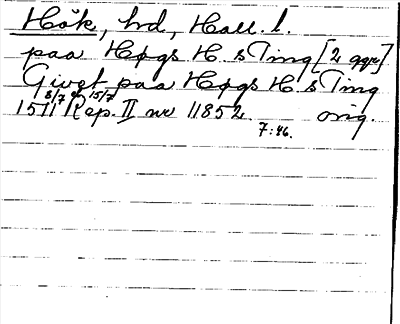 Hök, hd, Hall. l.
paa Høgs H. s Ting [2 ggr]
Givet paa Høgs H. s Ting
8/7 o 15/7
1511 Rep. II nr 11852 orig.
7:46.